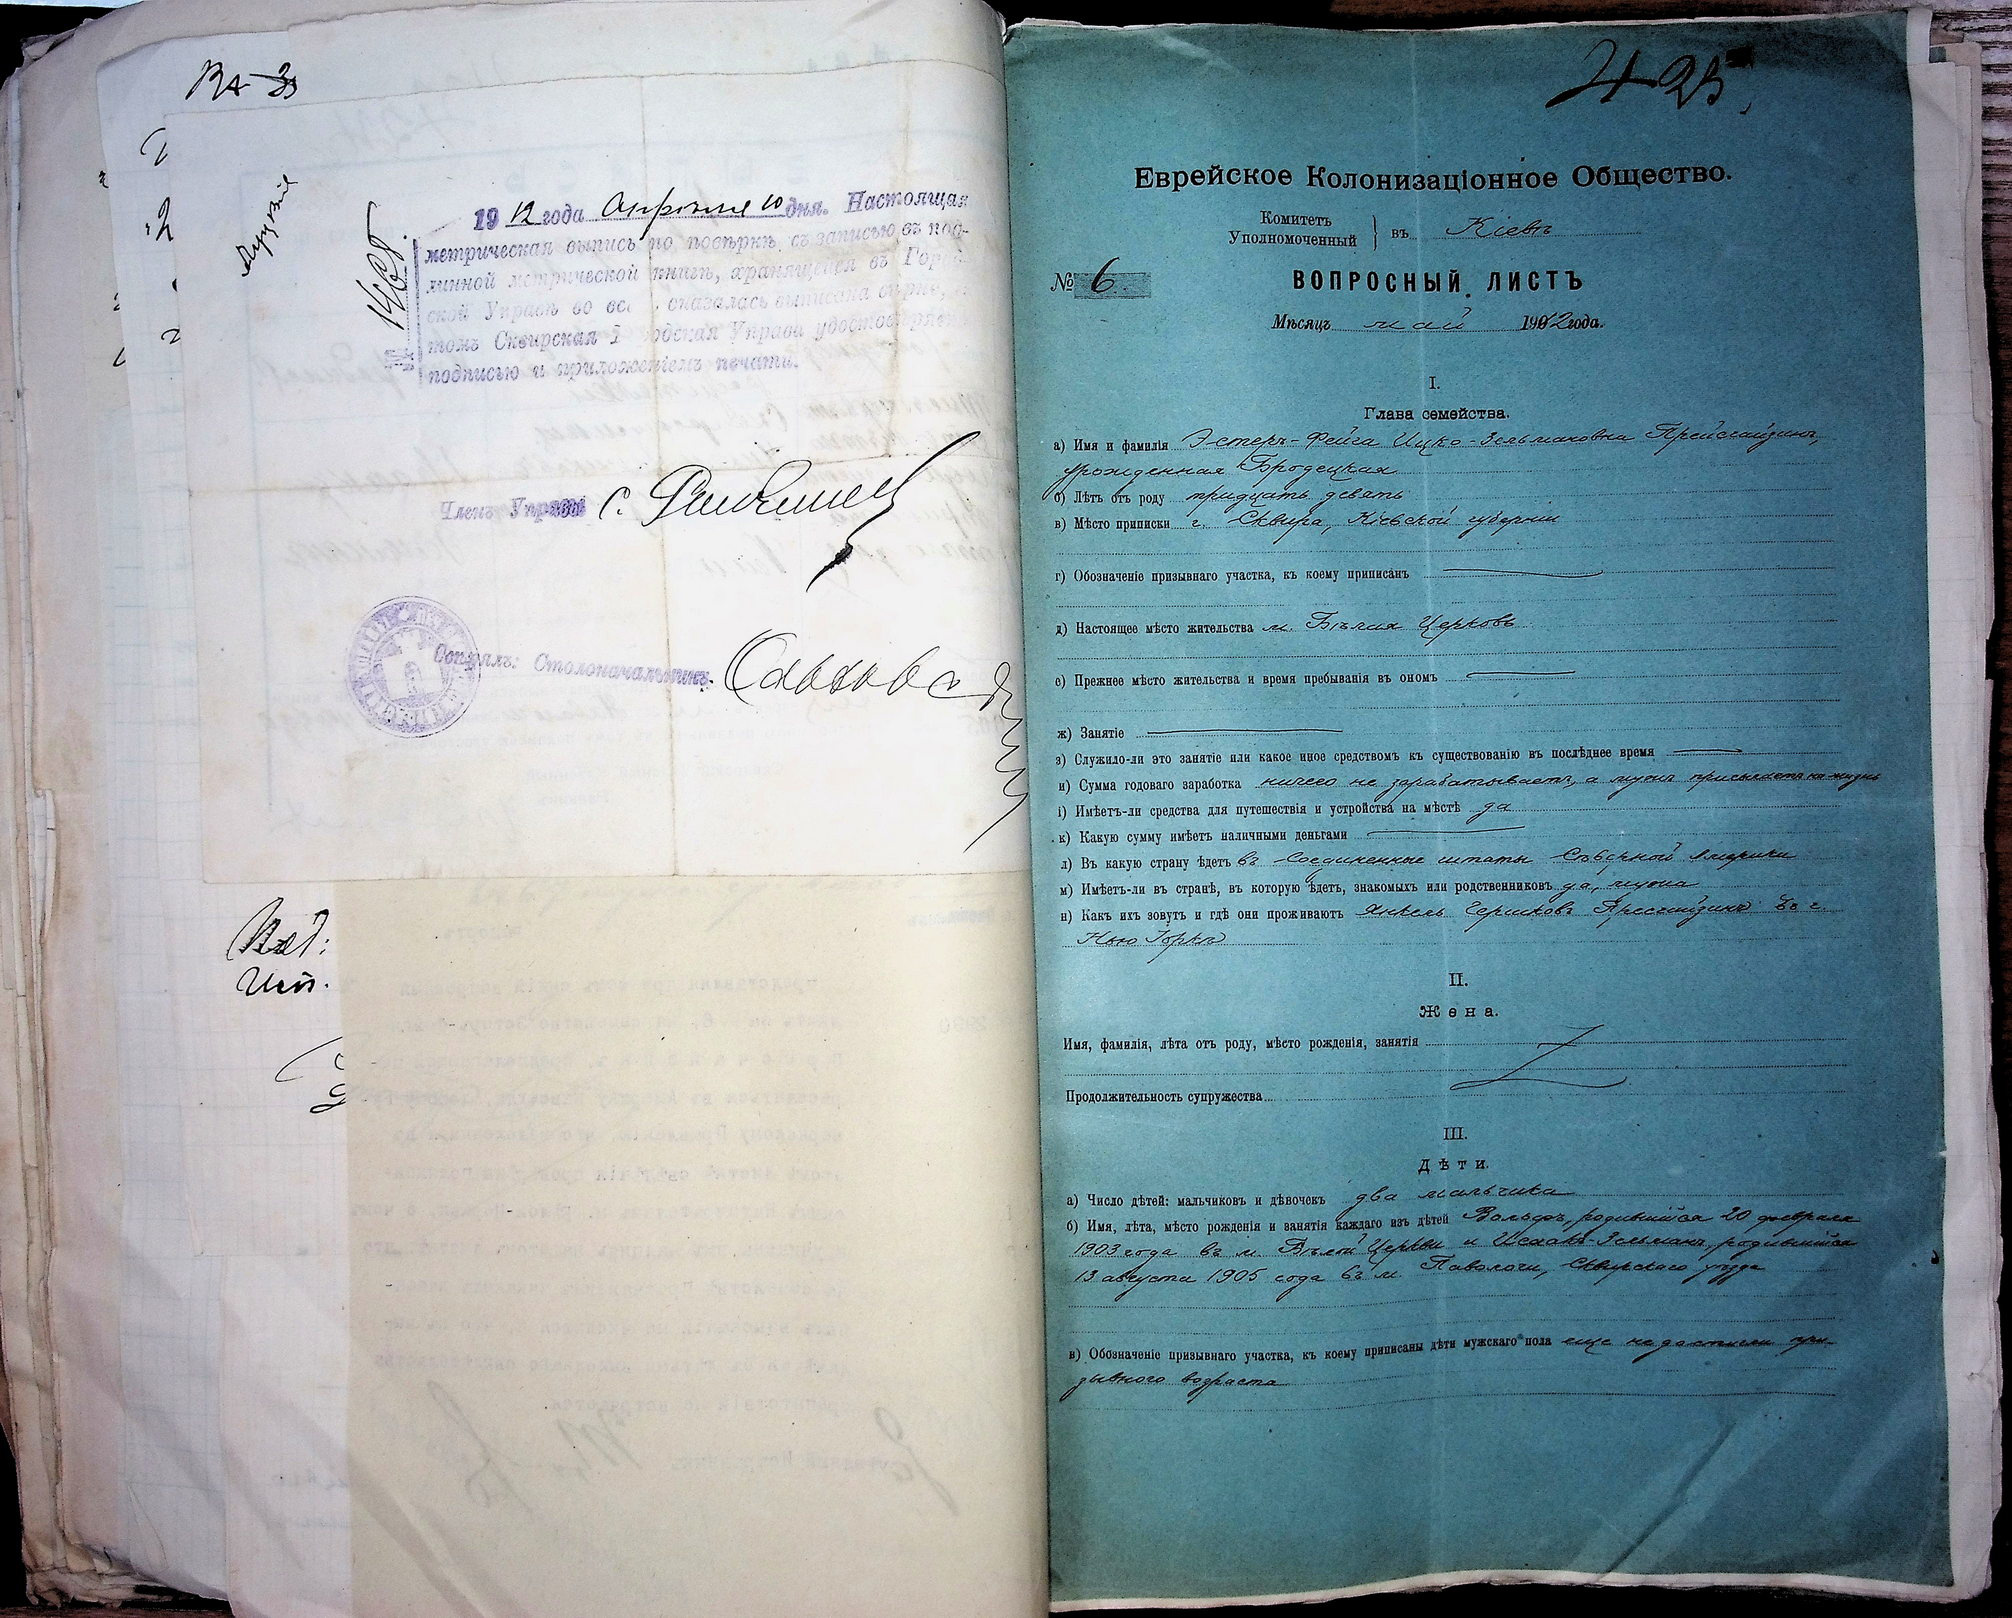 19 12 года Апрѣля 10 дня. Настоящая
метрическая выпись по повѣркѣ съ записью въ под-
линной метрической книгѣ, хранящейся въ Город-
ской Управѣ во всемъ оказалась выписана вѣрно, въ
томъ Сквирская Городская Управа удостовѣряетъ
подписью и приложеніемъ печати.
№ 1468.
Членъ Управы С.
Свѣрялъ: Столоначальникъ
425
Еврейское Колонизаціонное Общество.
Комитетъ
Уполномоченный } въ Кіевѣ
№ 6
ВОПРОСНЫЙ ЛИСТЪ
Мѣсяцъ май 1912 года.
I.
Глава семейства.
а) Имя и фамилія Эстеръ-Фейга Ицко-Зельмановна Прейсгайзинъ,
урожденная Бродецкая
б) Лѣтъ отъ роду тридцать девять
в) Мѣсто приписки г. Сквира, Кіевской губерніи
г) Обозначеніе призывнаго участка, къ коему приписанъ
д) Настоящее мѣсто жительства м. Бѣлая Церковь
е) Прежнее мѣсто жительства и время пребыванія въ ономъ
ж) Занятіе
з) Служило-ли это занятіе или какое иное средствомъ къ существованію въ послѣднее время
и) Сумма годоваго заработка ничего не зарабатываетъ, а мужъ присылаетъ на жизнь
і) Имѣетъ-ли средства для путешествія и устройства на мѣстѣ да
к) Какую сумму имѣетъ наличными деньгами
л) Въ какую страну ѣдетъ въ Соединенные штаты Сѣверной Америки
м) Имѣетъ-ли въ странѣ, въ которую ѣдетъ, знакомыхъ или родственниковъ да, мужа
н) Какъ ихъ зовутъ и гдѣ они проживаютъ Янкель Гершковъ Пресгайзинъ въ г.
Нью Іоркѣ
II.
Жена.
Имя, фамилія, лѣта отъ роду, мѣсто рожденія, занятія
Продолжительность супружества
III.
Дѣти.
а) Число дѣтей: мальчиковъ и дѣвочекъ два мальчика
б) Имя, лѣта, мѣсто рожденія и занятія каждаго изъ дѣтей Вольфъ, родившійся 20 февраля
1903 года въ м. Бѣлой Церкви и Исаакъ-Зельманъ, родившійся
13 августа 1905 года въ м. Паволочи, Сквирскаго уѣзда
в) Обозначеніе призывнаго участка, къ коему приписаны дѣти мужскаго пола еще не достигли при-
зывного возраста